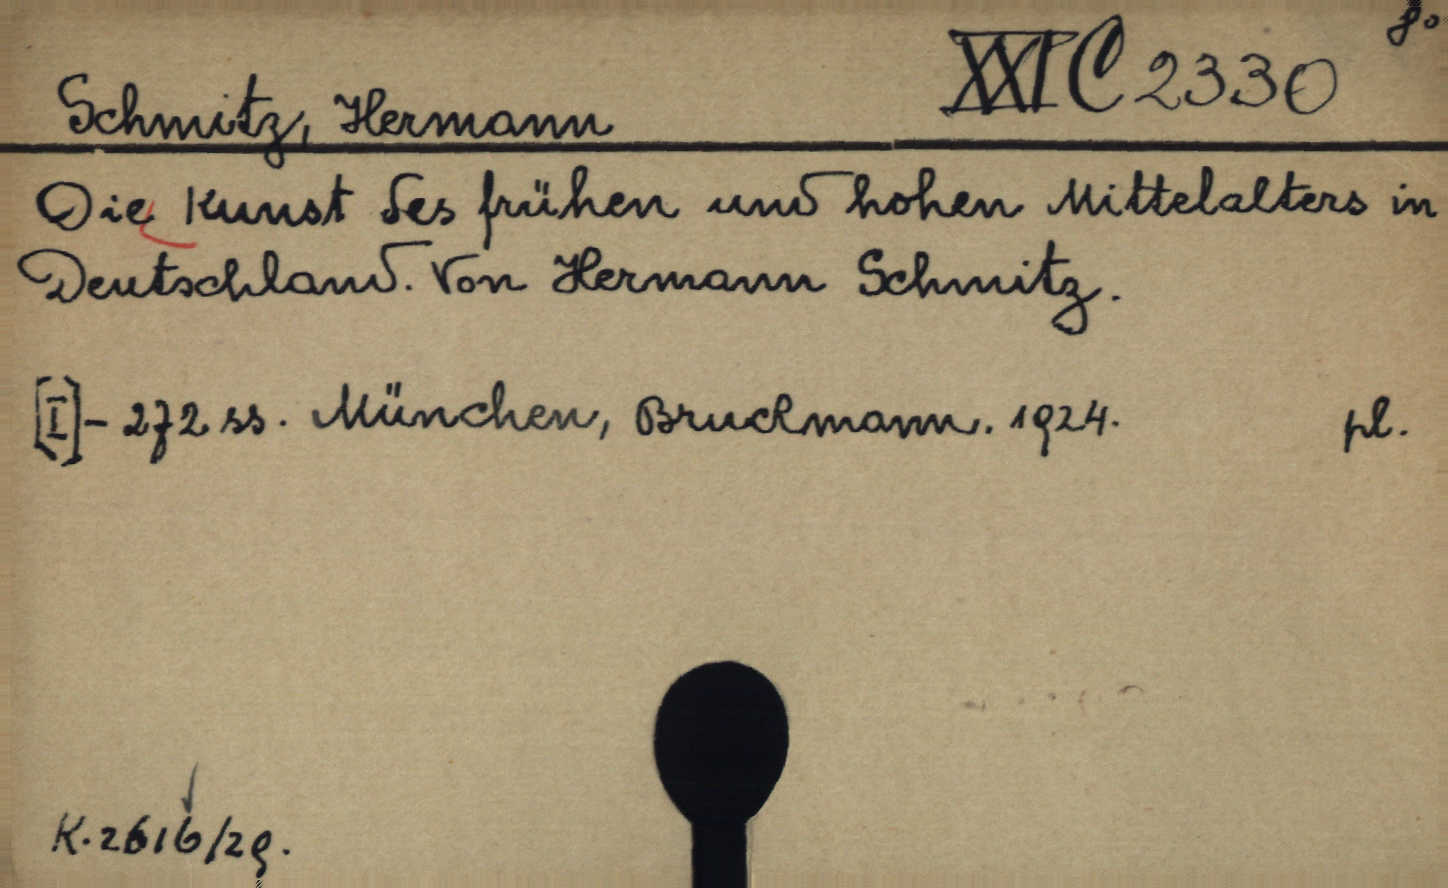 8°
XXI C 2330
Schmitz, Hermann
Die Kunst des frühen und hohen Mittelalters in
Deutschland. Von Hermann Schmitz.
[I] - 272 ss. München, Bruckmann. 1924. pl.
K. 2616/29.